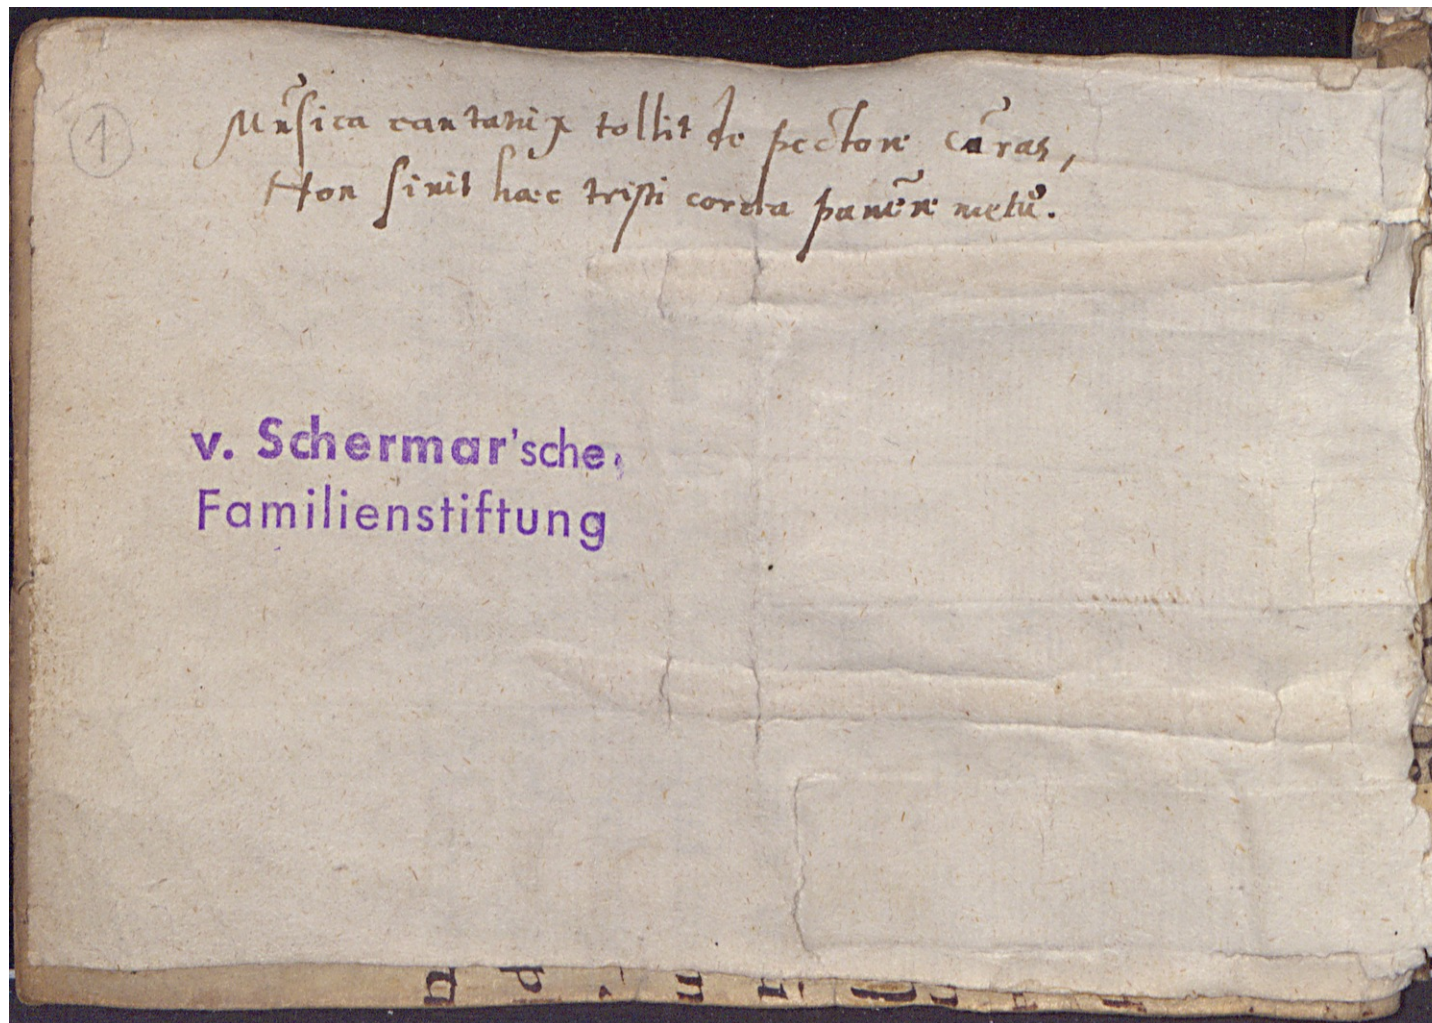 1
Musica cantatum tollit de pectore curas,
Non sinit hæc tristi corda pauere metu.
v. Schermar'sche,
Familienstiftung